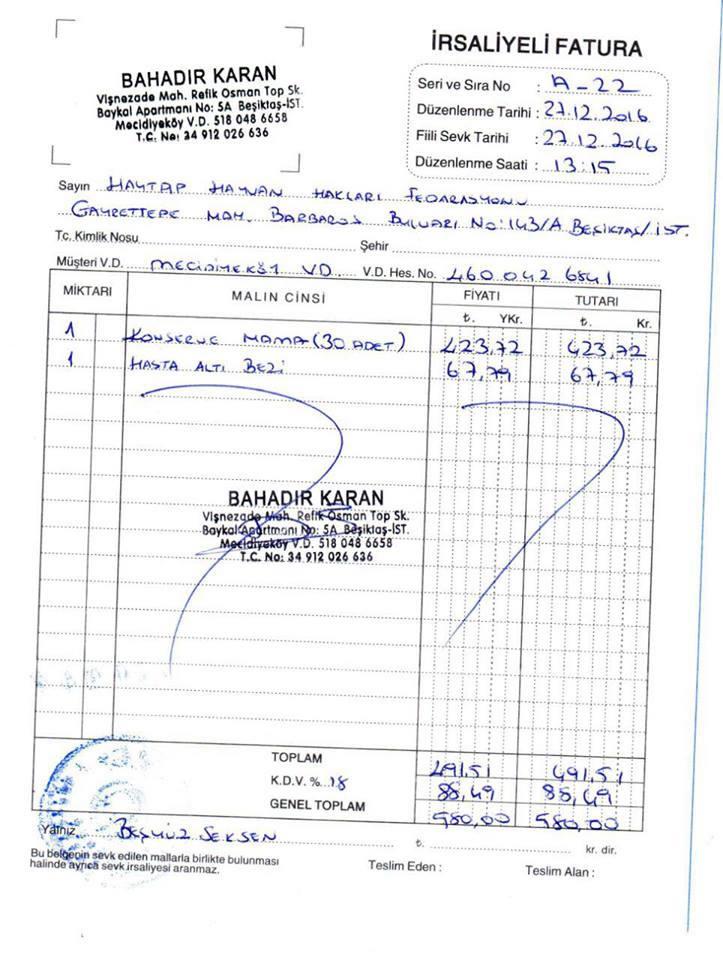 İRSALİYELİ FATURA
BAHADIR KARAN
Vişnezade Mah. Refik Osman Top Sk.
Baykal Apartmanı No: 5A Beşiktaş-İST.
Mecidiyeköy V.D. 518 048 6658
T.C. No: 34 912 026 636
Seri ve Sıra No : A-22
Düzenlenme Tarihi : 27.12.2016
Fiili Sevk Tarihi : 27.12.2016
Düzenlenme Saati : 13:15
Sayın HAYTAP HAYVAN HAKLARI FEDARASYONU
GAYRETTEPE MAH. BARBAROS BULVARI NO:143/A BEŞİKTAŞ/İST.
Tc. Kimlik Nosu Şehir
Müşteri V.D. MECİDİYEKÖY VD. V.D. Hes. No. 460 042 6841
MİKTARI MALIN CİNSİ FİYATI TUTARI
₺. YKr. ₺. Kr.
1 KONSERVE MAMA (30 ADET) 423,72 423,72
1 HASTA ALTI BEZİ 67,79 67,79
BAHADIR KARAN
Vişnezade Mah. Refik Osman Top Sk.
Baykal Apartmanı No: 5A Beşiktaş-İST.
Mecidiyeköy V.D. 518 048 6658
T.C. No: 34 912 026 636
TOPLAM 491,51 491,51
K.D.V. % 18 88,49 88,49
GENEL TOPLAM 580,00 580,00
Yalnız BEŞYÜZ SEKSEN ₺. kr. dir.
Bu belgenin sevk edilen mallarla birlikte bulunması
halinde ayrıca sevk irsaliyesi aranmaz.
Teslim Eden : Teslim Alan :